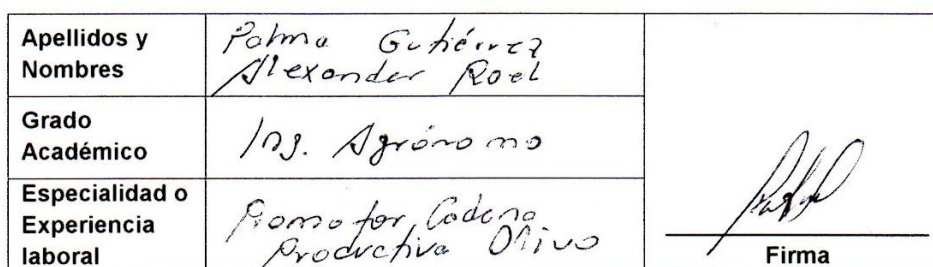 Apellidos y
Nombres
Palma Gutiérrez
Alexander Roel
Grado
Académico
Ing. Agrónomo
Especialidad o
Experiencia
laboral
Promotor Cadena
Productiva Olivo
Firma